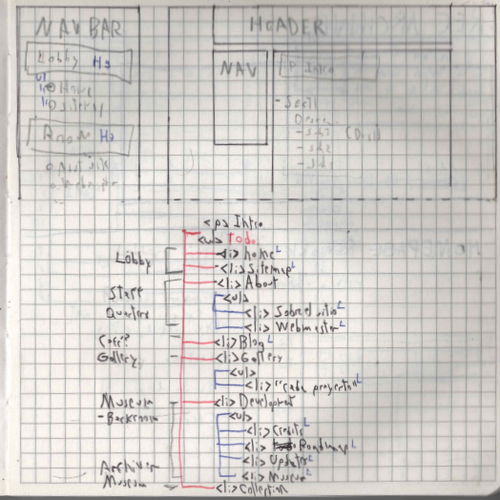 NAV BAR
Lobby H3
ul
li Home
li Sitemap
Room H3
HEADER
NAV
P Intro
<p> Intro
<ul> Todo
<li> home L
<li> Sitemap L
<li> About
<ul>
<li> Sobre el sitio L
<li> Webmaster L
<li> Blog L
<li> Gallery
<ul>
<li> cada proyecto L
<li> Development
<ul>
<li> Credits L
<li> Roadmap L
<li> Updates L
<li> Museum L
<li> Collection
Lobby
Staff
Quarters
Gallery
Museum
- Backroom
Archives
Museum